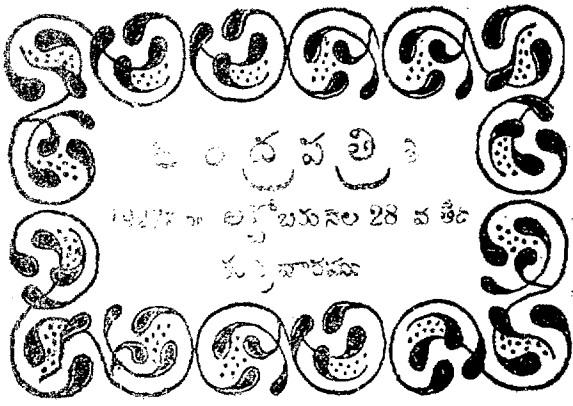 ఆంధ్రపత్రిక
అక్టోబరునెల 28 వ తేది
శుక్రవారము